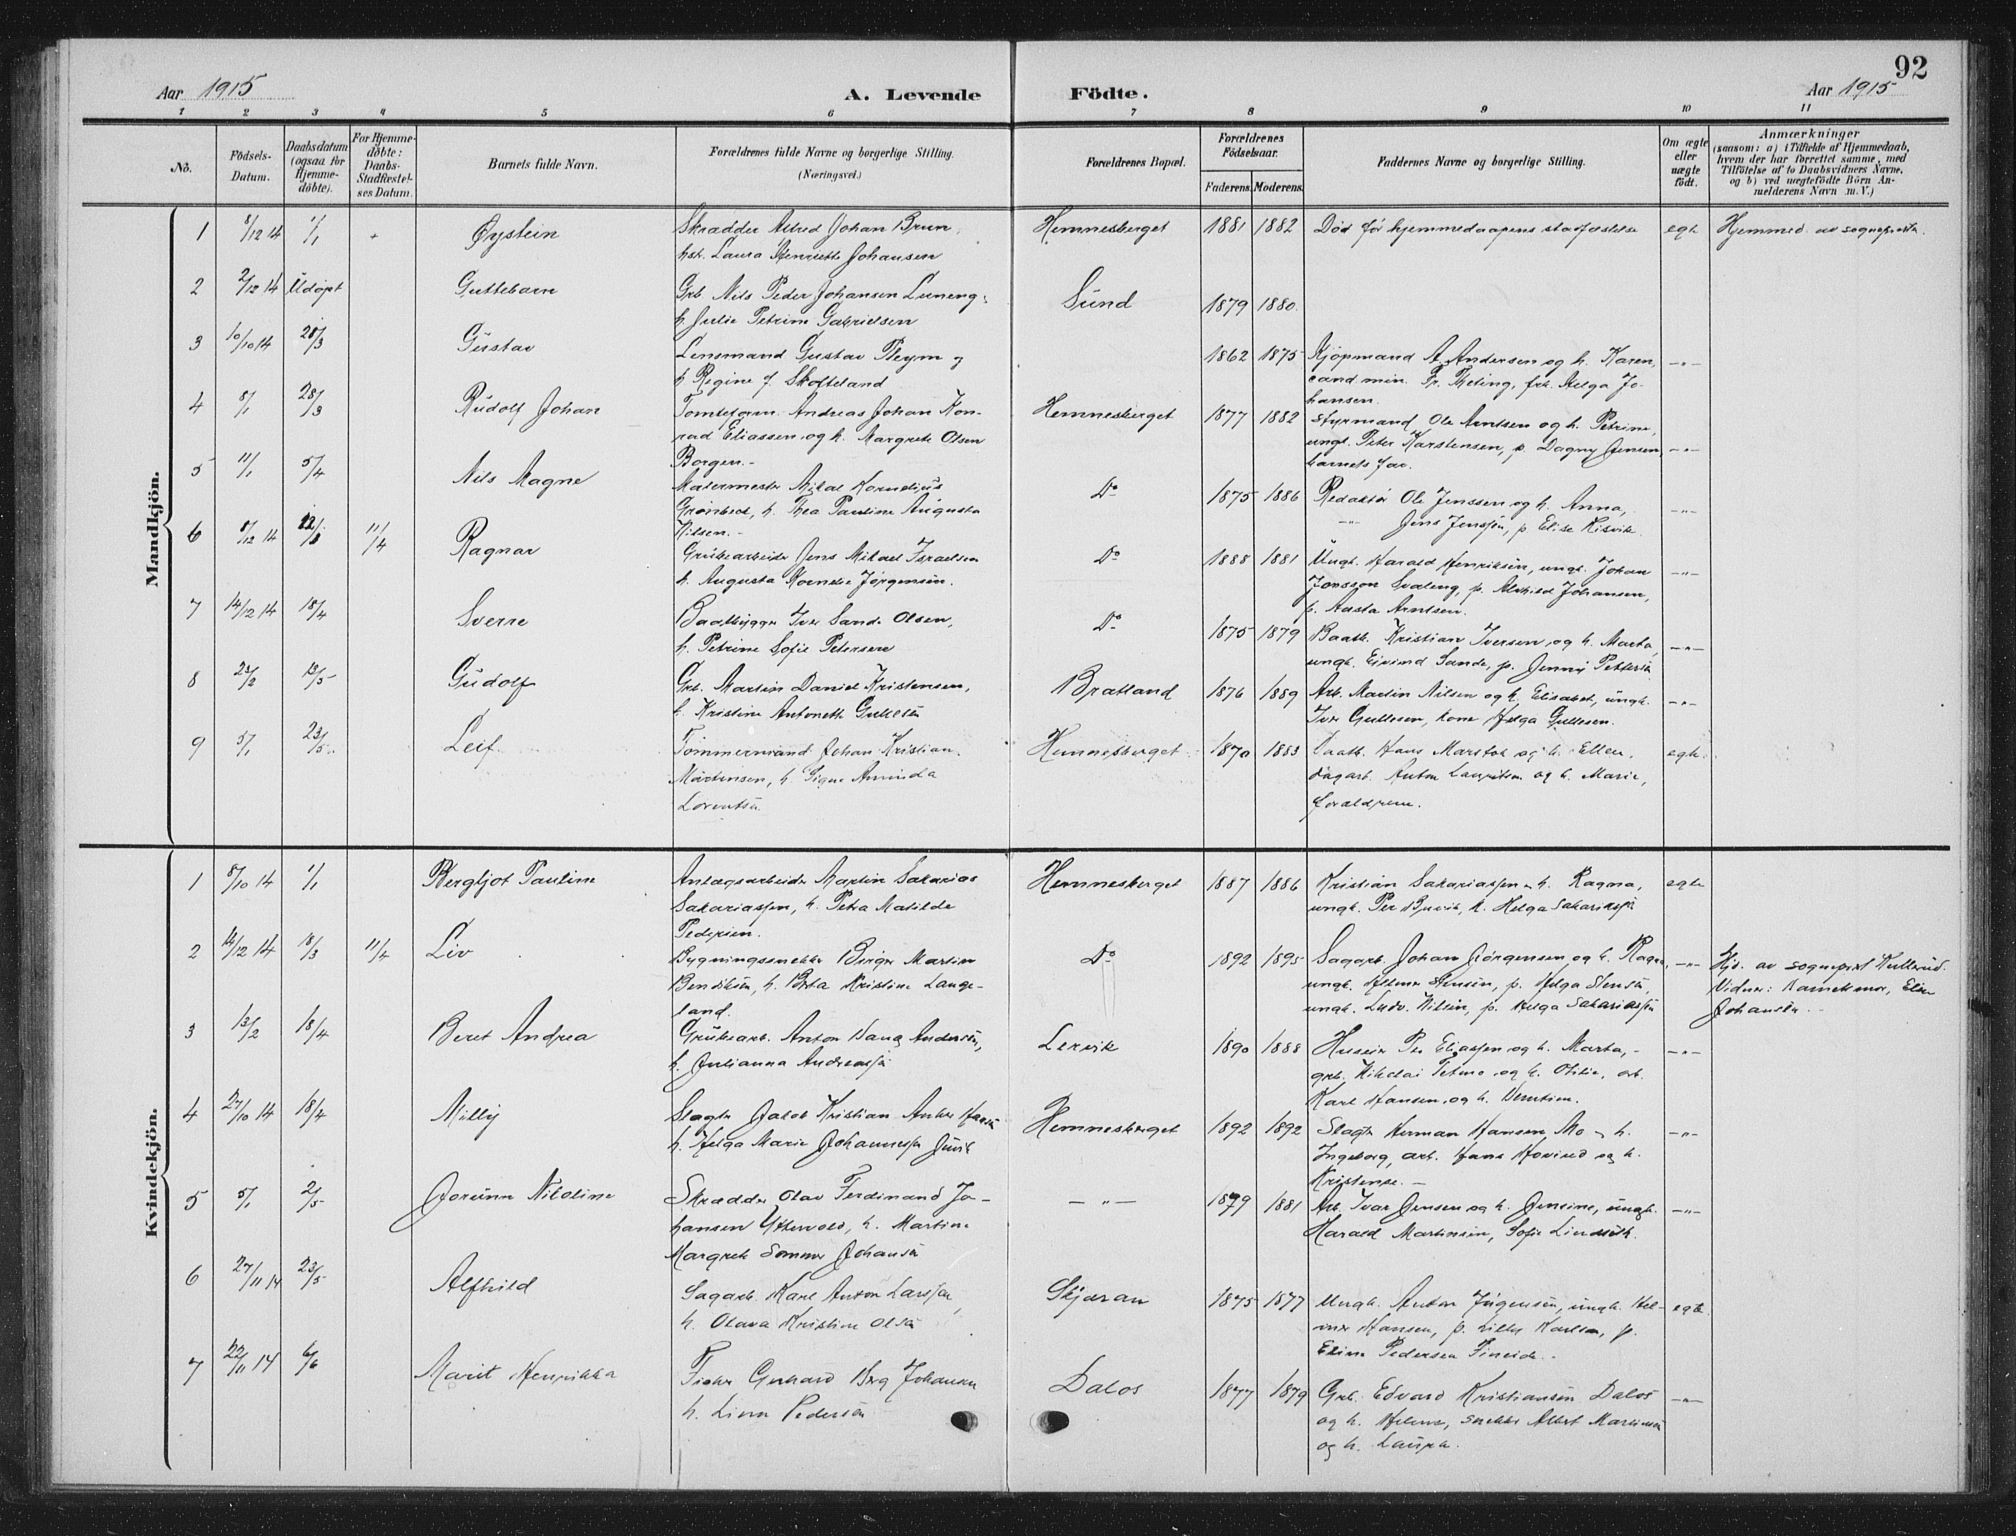 92
Aar 1915
A. Levende
Födte.
Aar 1915
1 2 3 4 5 6 7 8 9 10 11
No.
Födsels-
Datum.
Daabsdatum
(ogsaa for
Hjemme-
döbte).
For Hjemme-
döbte:
Daabs-
Stadfæstel-
ses Datum.
Barnets fulde Navn.
Forældrenes fulde Navne og borgerlige Stilling.
(Næringsvei.)
Forældrenes Bopæl.
Forældrenes
Födselsaar.
Faderens. Moderens.
Faddernes Navne og borgerlige Stilling.
Om ægte
eller
uægte
födt.
Anmærkninger
(saasom: a) i Tilfælde af Hjemmedaab,
hvem der har forrettet samme, med
Tilföielse af to Daabsvidners Navne,
og b) ved uægtefödte Börn An-
melderens Navn m. V.)
Mandkjön.
1 8/12 14 1/1 Øystein
Skrædder Alfred Johan Brun,
hst. Laura Henriette Johansen
Hemnesberget 1881 1882
Død før hjemmedaapens stadfæstelse
egte
Hjemmed. av sogneprest
2 2/12 14 Udøpt Guttebarn
Grb. Nils Peder Johansen Luneng,
h. Julie Petrine Gabrielsen
Sund 1879 1880.
3 10/10 14 28/3 Gustav
Lensmand Gustav Pleym og
h. Regine f. Skotteland
1862 1875
Kjøpmand A. Andersen og h. Karen,
cand. min. Fr. Theting, frk. Helga Jo-
hansen.
4 8/1 28/3 Rudolf Johan
Tomteform. Andreas Johan Kon-
rad Eliassen og h. Margrete Olsen
Borgen.
Hemnesberget 1877 1882
Styrmand Ole Arntsen og h. Petrine,
ungk. Peter Karstensen, p. Dagny Jensen
barnets far.
5 11/1 5/4 Nils Magne
Malermester Mikal Kornelius
Grønbech, h. Thea Pauline Augusta
Nilsen.
Do 1875 1886
Redaktør Ole Jenssen og h. Anna,
Jens Jenssen, p. Elise Risvik.
6 8/12 14 11/4 Ragnar
Grubearbeider Jens Mikael Israelsen
h. Augusta Jørgensen.
Do 1888 1881
Ungk. Harald Henriksen, ungk. Johan
Jonsson Svaleng, p. Johansen,
p. Aasta Arntsen.
7 14/12 14 18/4 Sverre
Baatbygger Iver Sande Olsen,
h. Petrine Sofie Petersen
Do 1875 1879
Baatb. Kristian Iversen og h. Marta,
ungk. Eivind Sande, p. Jenny
8 23/2 13/5 Gudolf
Grb. Martin Daniel Kristensen,
h. Kristine Antonette
Bratland 1876 1889
Arb. Martin Nilsen og h. Elisabet, ungk.
Iver Gullesen, kone Helga Gullesen.
9 5/1 23/5 Leif
Tømmermand Johan Kristian
Mortensen, h. Signe Aminda
Lorentsen
Hemnesberget 1870 1883
Baatb. Hans og h. Ellen,
Sagarb. Anton Lauritsen og h. Marie,
forældrene.
egte
Kvindekjön.
1 8/10 14 1/1 Bergljot Pauline
Anlægsarbeider Martin Sakarias
Sakariassen, h. Petra Matilde
Pedersen.
Hemnesberget 1887 1886
Kristian Sakariassen, h. Ragna,
ungk. Per h. Helga Sakariassen
egte
2 14/12 14 18/3 11/4 Liv
Bygningssnekker Birger Martin
Bendiksen, h. Berta Kristine Lange-
land.
Do 1892 1895
Sagarb. Johan Jørgensen og h. Ragna,
ungk. Hilmer Stensen, p. Helga
ungk. Ludv. Nilsen, p. Helga Sakariassen
Hjd. av sogneprest Kullerud.
Vidner: Barnets mor, Elen
Johansen.
3 13/2 18/4 Beret Andrea
Grubearb. Anton Andersen,
h. Julianna Andreassen
Lervik 1890 1888
Huseier Per Eliassen og h. Marta,
grb. Nikolai og h. Otilie, arb.
Karl Hansen og h.
4 27/10 14 18/4 Milly
Slagter Jakob Kristian Anker
h. Helga Marie Johannessen
Hemnesberget 1892 1892
Slagter Herman Hansen Mo h.
Ingeborg, arb. Hans og h.
Kristense.
5 5/1 2/5 Jorunn Nikoline
Skrædder Olav Ferdinand Jo-
hansen Yttervold, h. Martine
Margrete Sommer Johansen
1879 1881
Arb. Ivar Jensen og h. Jensine, ungk.
Harald Martinsen, Sofie
6 27/11 14 23/5 Alfhild
Sagarb. Karl Anton Larssen,
h. Olava Kristine Olsen
Skjæran 1875 1877
Ungk. Anton Jørgensen, ungk. Hel-
mer Hansen, p. Karlsen, p.
Eline Pedersen Fineide.
egte
7 22/11 14 6/6 Marit Henrikka
Fisker Gerhard Berg Johansen
h. Pedersen
Dalos 1877 1879
Grb. Edvard Kristiansen Dalos
og h. Helene, snekker Albert
og h. Laura.